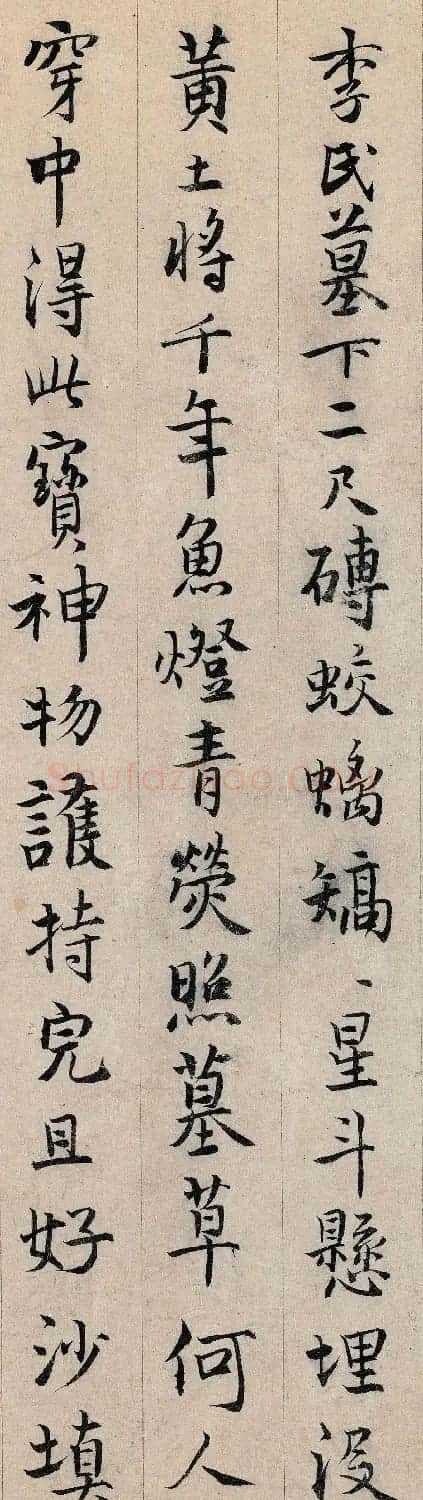 李氏墓下二尺磚蛟螭矯〻星斗懸埋没
黄土將千年魚燈青熒照墓草何人
穿中得此寶神物護持完且好沙填
shufazidao.com